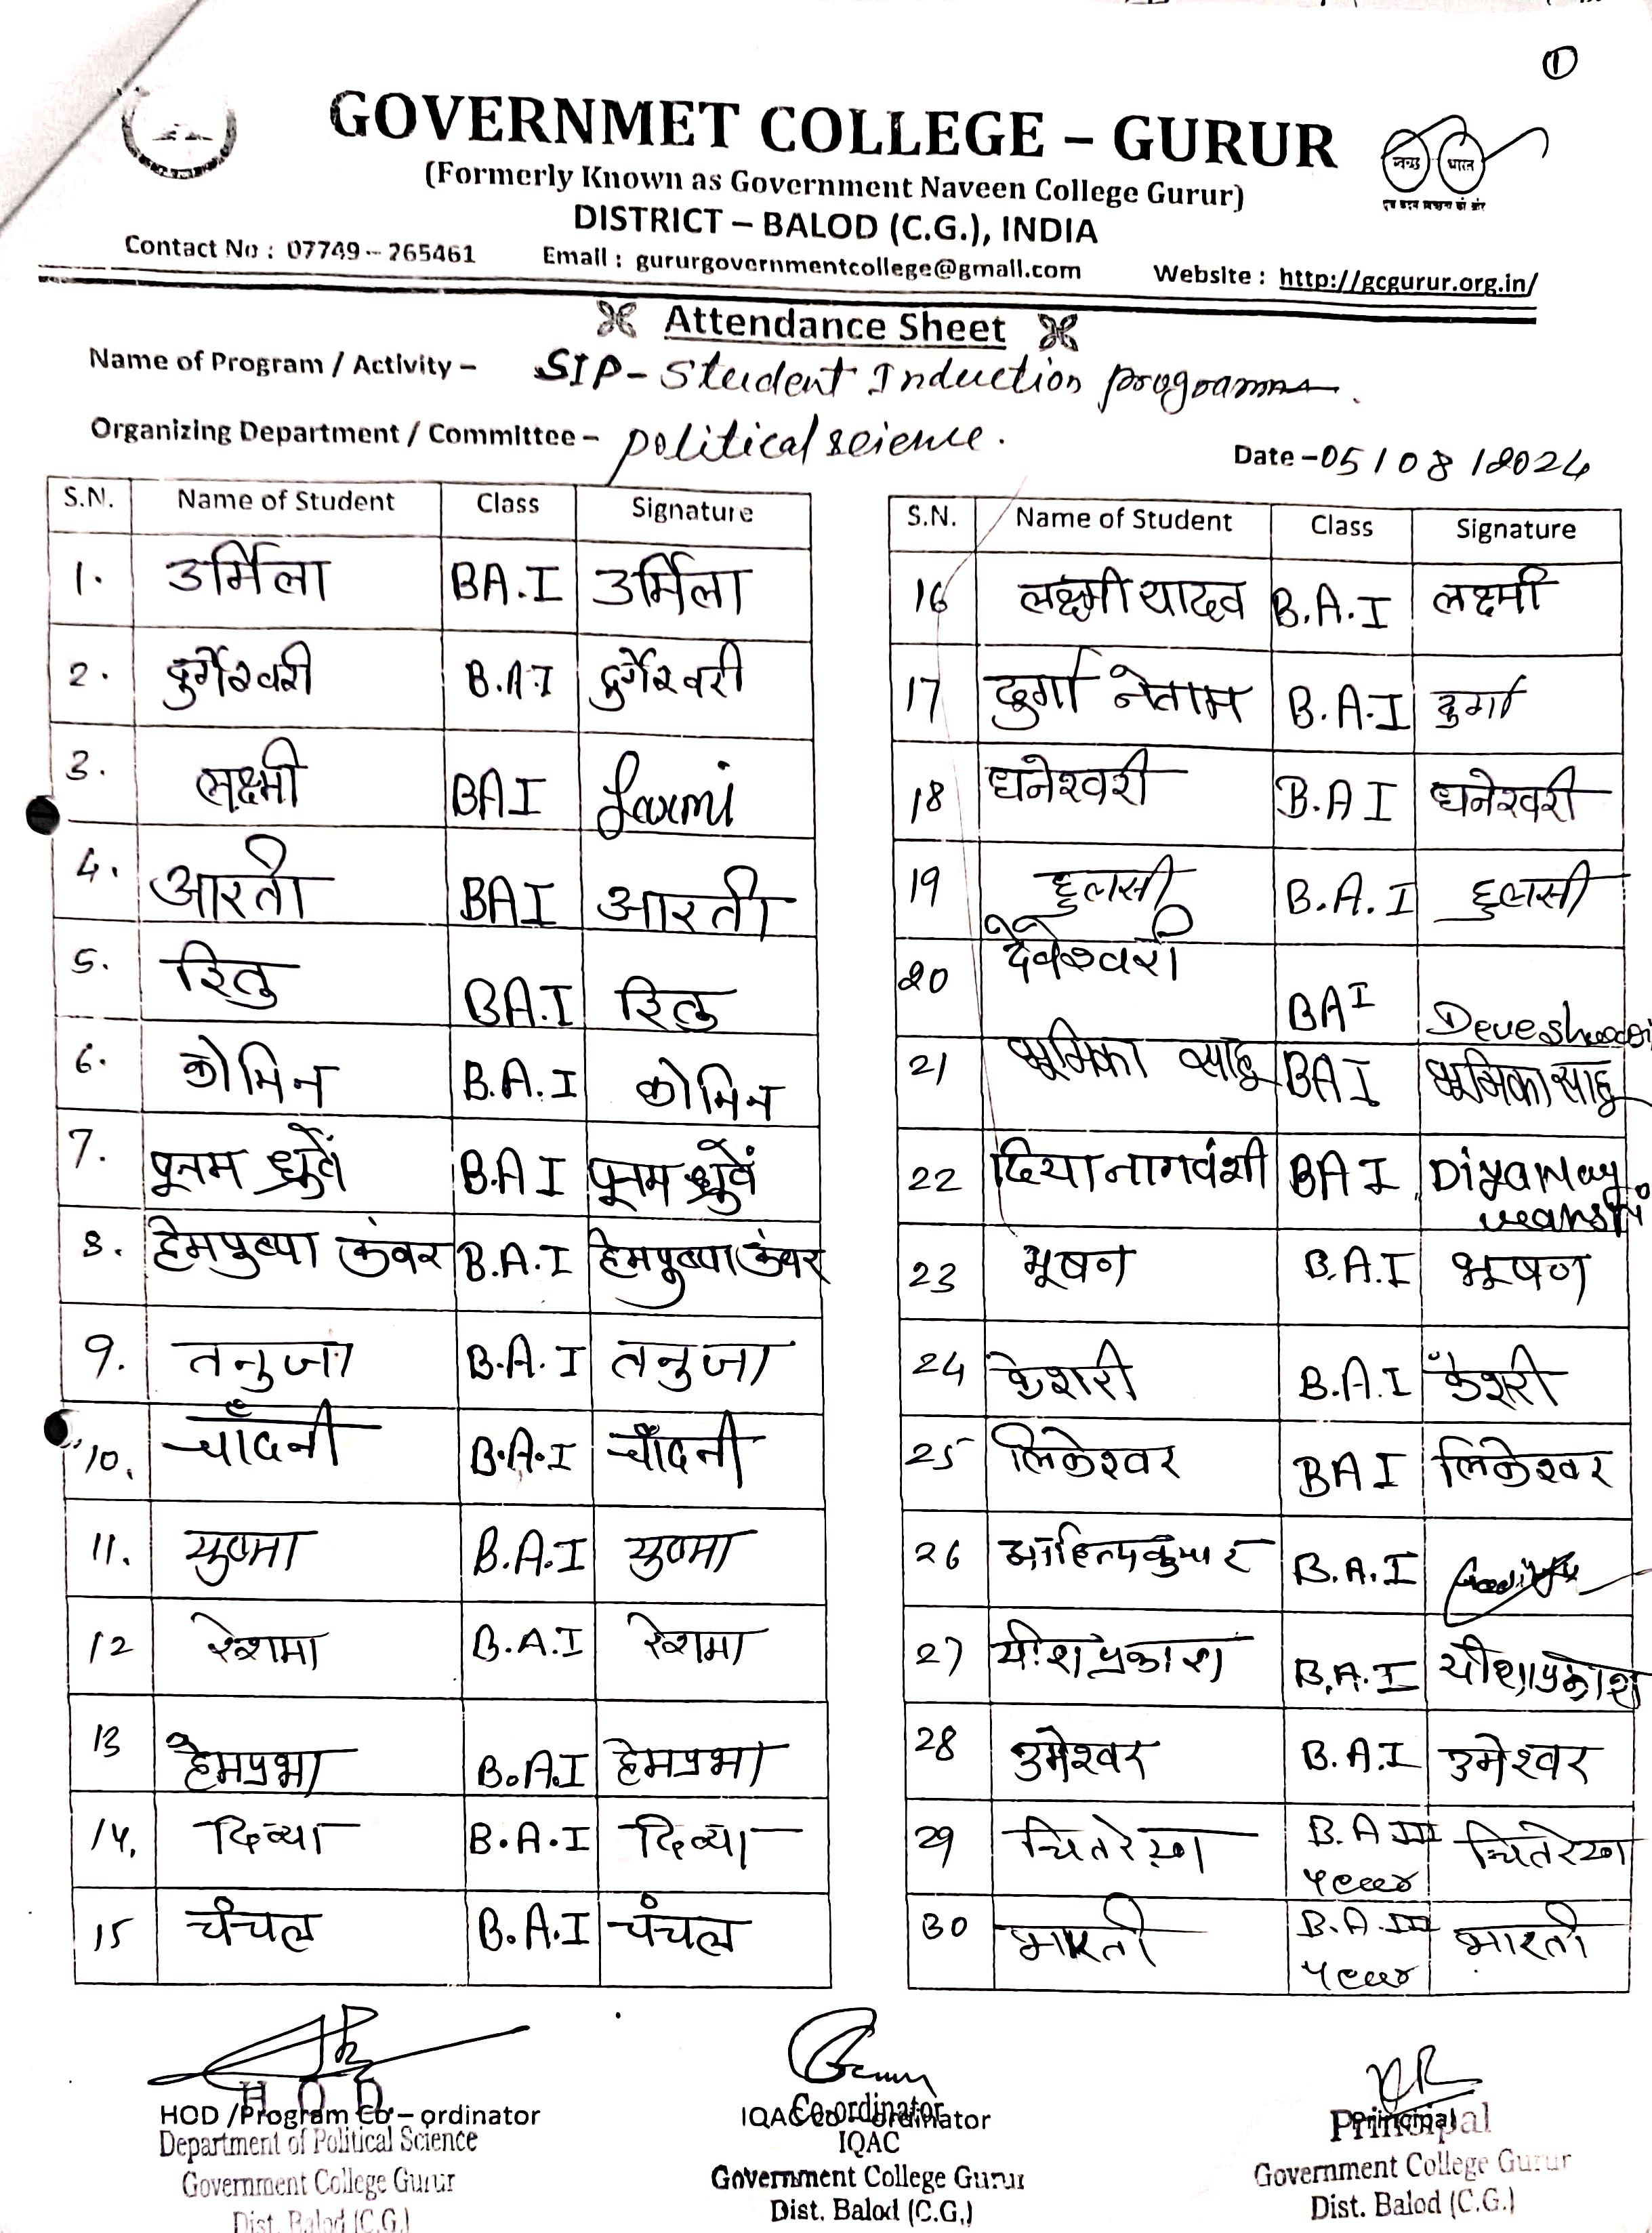 1
GOVERNMET COLLEGE – GURUR
(Formerly Known as Government Naveen College Gurur)
DISTRICT – BALOD (C.G.), INDIA
Contact No : 07749 – 265461 Email : gururgovernmentcollege@gmail.com Website : http://gcgurur.org.in/
भारत
Attendance Sheet
Name of Program / Activity – SIP - Student Induction programme.
Organizing Department / Committee – political science.
Date – 05/08/2024
S.N. Name of Student Class Signature
1. उर्मिला BA.I उर्मिला
2. दुर्गेश्वरी B.A.I दुर्गेश्वरी
3. लक्ष्मी BAI Laxmi
4. आरती BAI आरती
5. रितु BA.I रितु
6. कोमिन B.A.I कोमिन
7. पूनम ध्रुर्वे B.A I पूनम ध्रुर्वे
8. हेमपुष्पा कंवर B.A.I हेमपुष्पा कंवर
9. तनुजा B.A.I तनुजा
10. चाँदनी B.A.I चाँदनी
11. सुषमा B.A.I सुषमा
12 रेशमा B.A.I रेशमा
13 हेमप्रभा B.A.I हेमप्रभा
14. दिव्या B.A.I दिव्या
15 चंचल B.A.I चंचल
S.N. Name of Student Class Signature
16 लक्ष्मी यादव B.A.I लक्ष्मी
17 दुर्गा नेताम B.A.I दुर्गा
18 धनेश्वरी B.A I धनेश्वरी
19 हुलसी B.A.I हुलसी
20 देवेश्वरी BAI Deveshwari
21 भूमिका साहू BAI भूमिका साहू
22 दिया नागवंशी BAI Diya Nag
vanshi
23 भूषण B.A.I भूषण
24 केशरी B.A.I केशरी
25 लिकेश्वर BAI लिकेश्वर
26 B.A.I
27 यीशप्रकाश B.A.I यीशप्रकाश
28 उमेश्वर B.A.I उमेश्वर
29 चितरेखा B.A III चितरेखा
year
30 भारती B.A.III भारती
year
H O D
HOD /Program Co – ordinator
Department of Political Science
Government College Gurur
Dist. Balod (C.G.)
Co-ordinator
IQAC Co – ordinator
IQAC
Government College Gurur
Dist. Balod (C.G.)
Principal
Principal
Government College Gurur
Dist. Balod (C.G.)